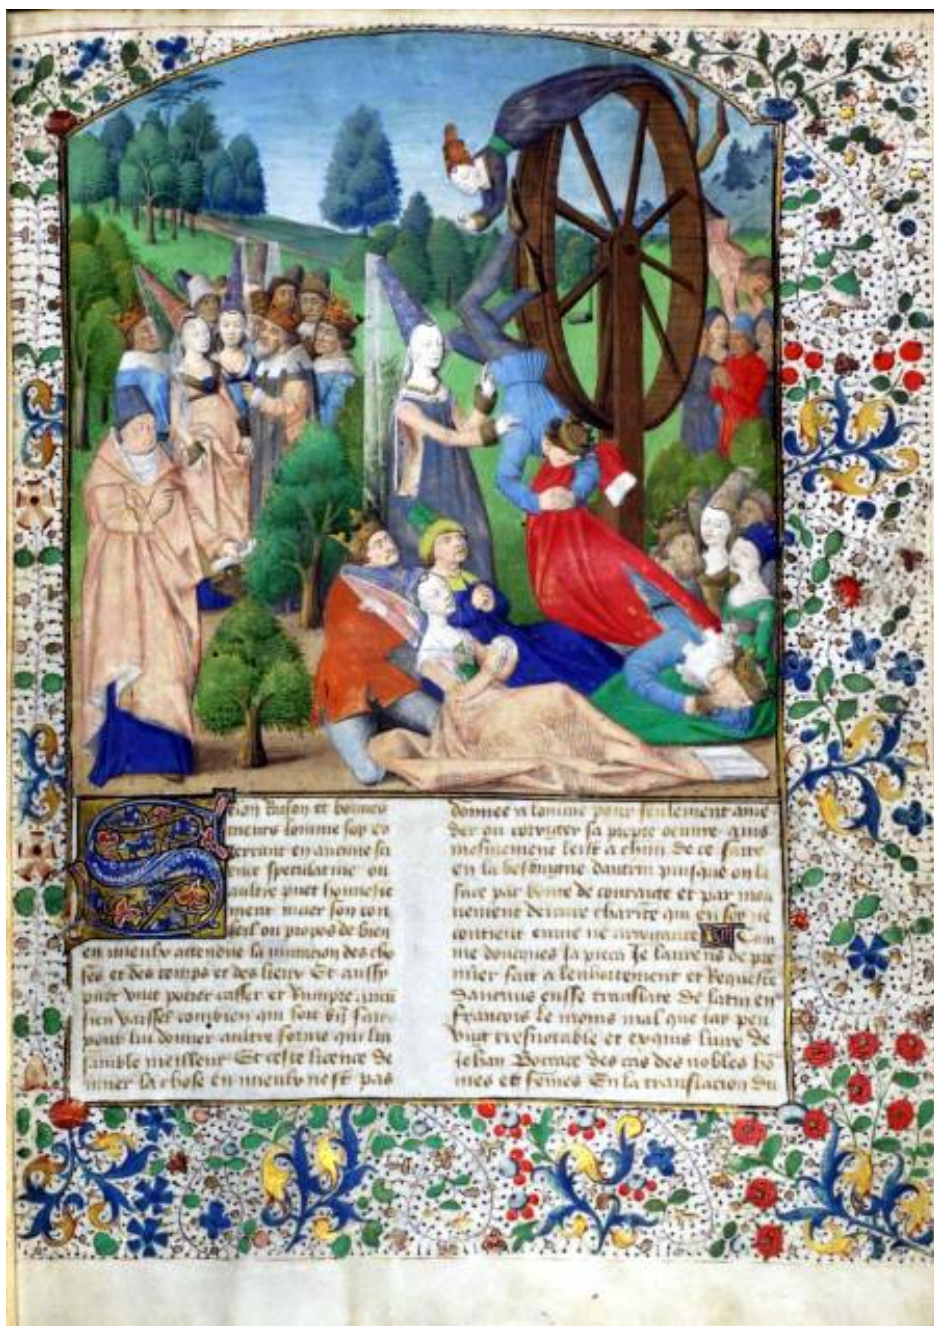 Selon Raison et bonnes
meurs lomme soy ex
ercant en aucune sci
ence speculative ou
aultre puet honneste
ment muer son con
seil ou propos de bien
en mieulx attendue la mutacion des cho
ses et des temps et des lieux Et aussy
puet ung potier casser et Rompre aucu
sien vaissel combien qui soit bn fait
pour lui donner aultre forme qui lui
samble meilleur Et ceste licence de
muer la chose en mieulx nest pas
donnee a lomme pour seulement ame
der ou corriger sa propre oeuvre ains
mesmement leist a chun de ce faire
en la besongne daultrui puisque on la
face par bonte de courage et par mou
vement de vraie charite qui en soy ne
contient envie ne arrogance Com
me doncques Ja pieca Je laurens de pre
mier fait a lenhortement et Requeste
daucuns eusse translate de latin en
francois le moins mal que iay peu
ung tresnotable et exquis livre de
iehan Boccace des cas des nobles ho
mes et femes En la translacion du